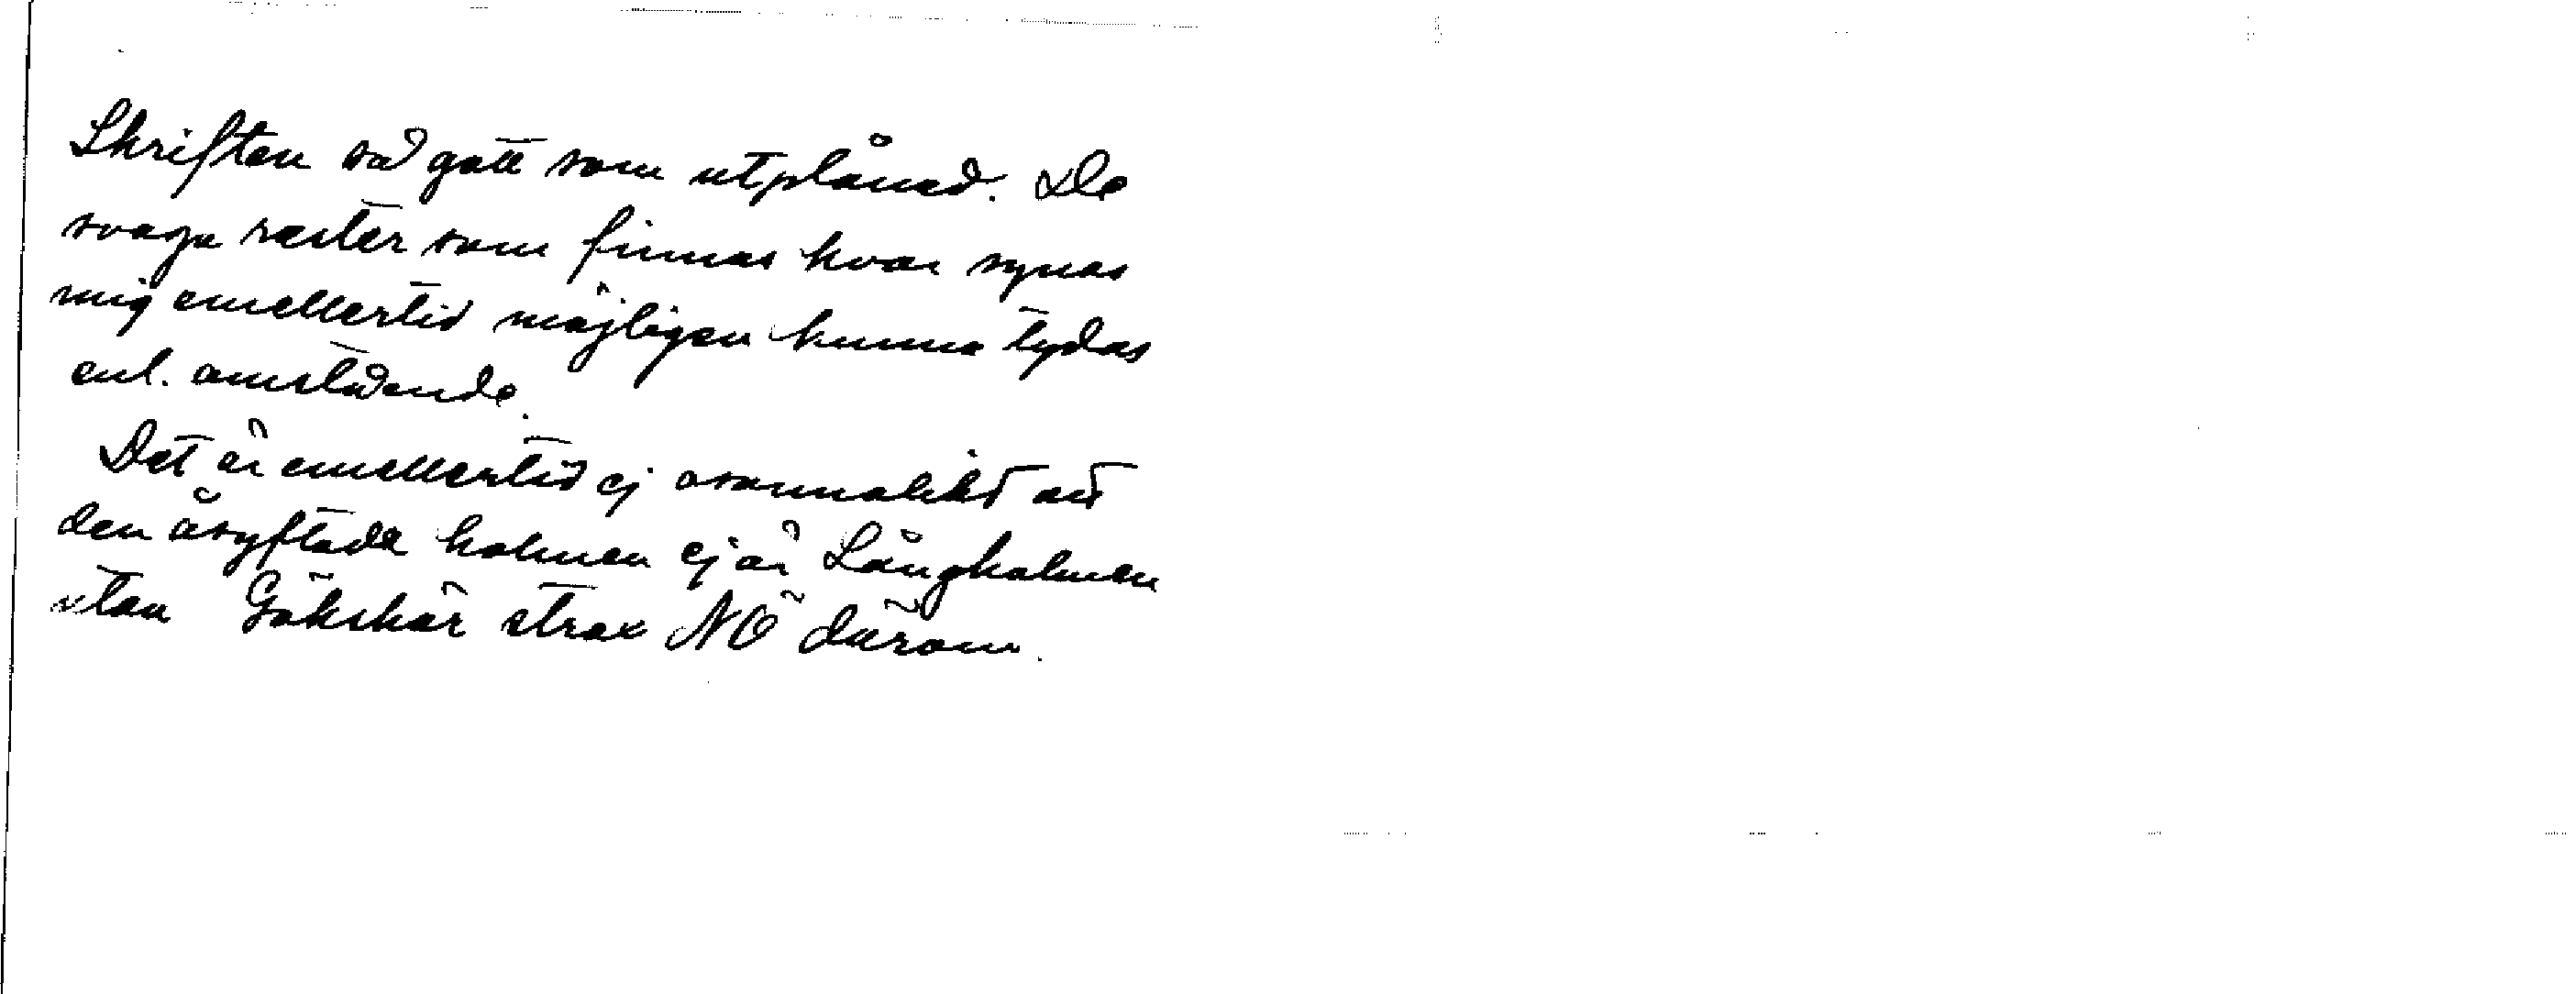 Skriften så gott som utplånad. De
svaga rester som finnas kvar synas
mig emellertid möjligen kunna tydas
enl. omstående.
Det är emellertid ej osannolikt att
den åsyftade holmen ej är Långholmen
utan Gökskär strax NÖ därom.